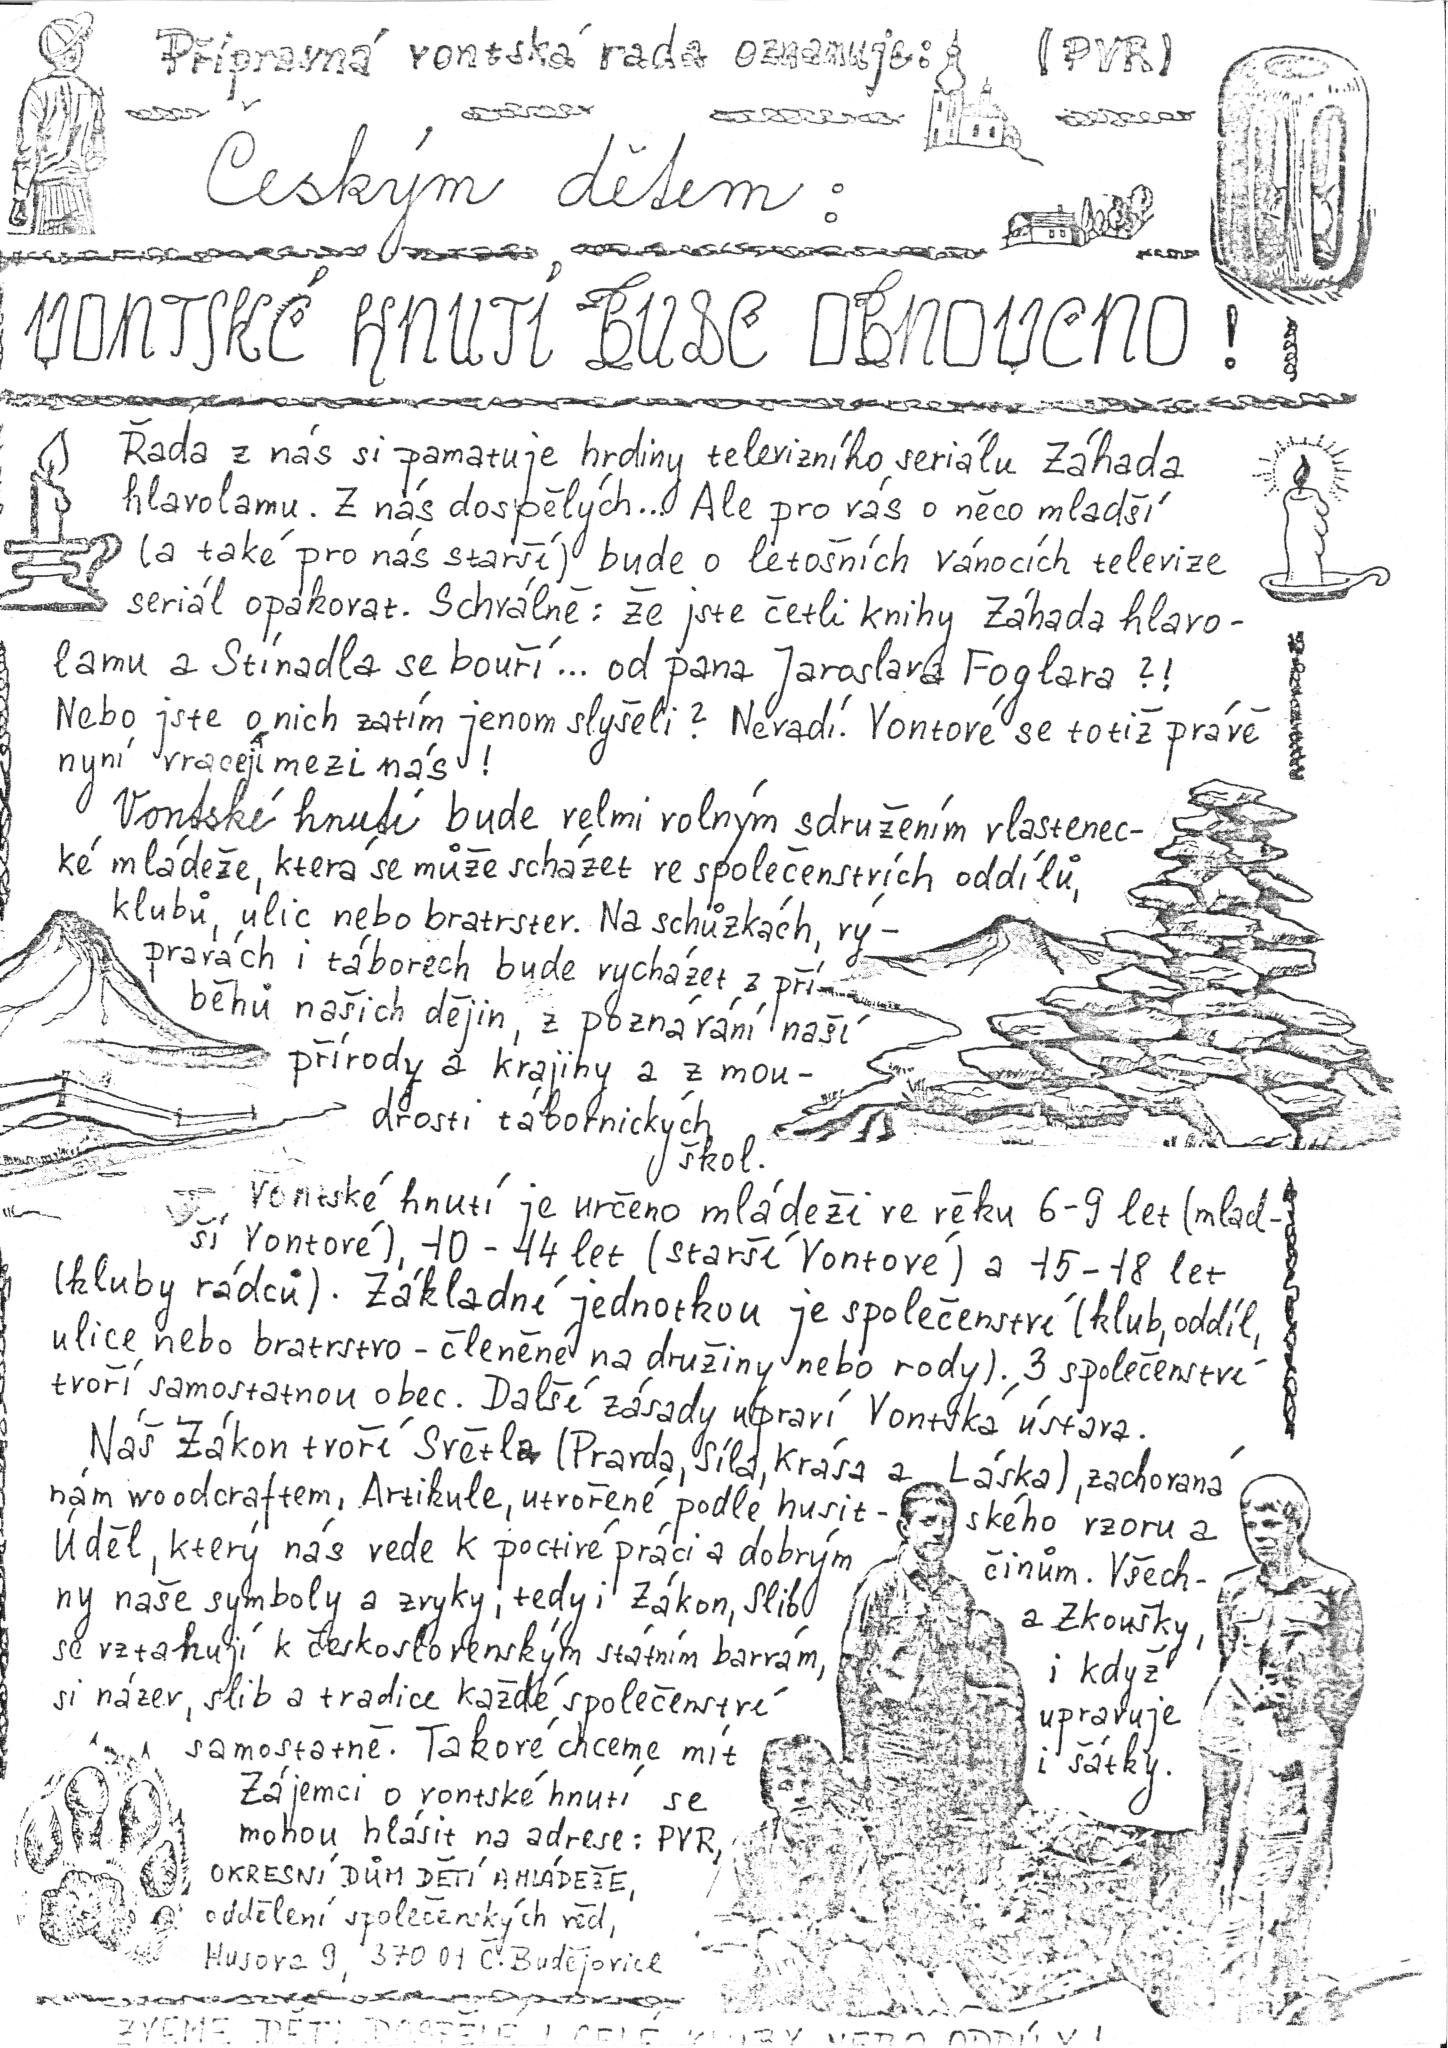 Přípravná vontská rada oznamuje: (PVR)
Českým dětem:
VONTSKÉ HNUTÍ BUDE OBNOVENO!
Řada z nás si pamatuje hrdiny televizního seriálu Záhada
hlavolamu. Z nás dospělých... Ale pro vás o něco mladší
(a také pro nás starší) bude o letošních vánocích televize
seriál opakovat. Schválně: že jste četli knihy Záhada hlavo-
lamu a Stínadla se bouří... od pana Jaroslava Foglara ?!
Nebo jste o nich zatím jenom slyšeli? Nevadí. Vontové se totiž právě
nyní vracejí mezi nás!
Vontské hnutí bude velmi volným sdružením vlastenec-
ké mládeže, která se může scházet ve společenstvích oddílů,
klubů, ulic nebo bratrstev. Na schůzkách, vý-
pravách i táborech bude vycházet z pří-
běhů našich dějin, z poznávání naší
přírody a krajiny a z mou-
drosti tábornických
škol.
Vontské hnutí je určeno mládeži ve věku 6-9 let (mlad-
ší Vontové), 10-14 let (starší Vontové) a 15-18 let
(kluby rádců). Základní jednotkou je společenství (klub, oddíl,
ulice nebo bratrstvo - členěné na družiny nebo rody). 3 společenství
tvoří samostatnou obec. Další zásady upraví Vontská ústava.
Náš Zákon tvoří Světla (Pravda, Síla, Krása a Láska), zachovaná
nám woodcraftem, Artikule, utvořené podle husit- ského vzoru a
Úděl, který nás vede k poctivé práci a dobrým činům. Všech-
ny naše symboly a zvyky, tedy i Zákon, Slib a Zkoušky,
se vztahují k československým státním barvám, i když
si název, slib a tradice každé společenství upravuje
samostatně. Takové chceme mít i šátky.
Zájemci o vontské hnutí se
mohou hlásit na adrese: PVR,
OKRESNÍ DŮM DĚTÍ A MLÁDEŽE,
oddělení společenských věd,
Husova 9, 370 01 Č. Budějovice
ZVEME DĚTI, DOSPĚLÉ I CELÉ KLUBY NEBO ODDÍLY!